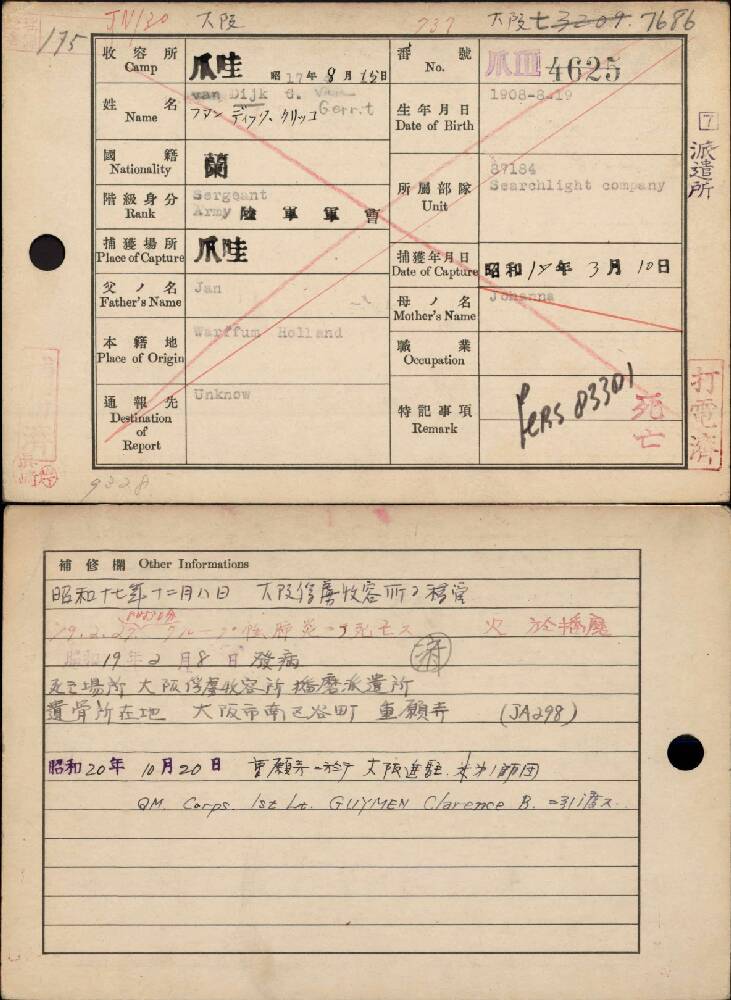 JN130 大阪 737 大阪七 3209. 7686
175
收容所 Camp 爪哇 昭17年8月15日 番號 No. 爪III 4625
姓名 Name van Dijk G. van Gerrit
ファン ディック、クリッコ
生年月日 Date of Birth 1908-8-19
7 派遣所
國籍 Nationality 蘭
所屬部隊 Unit 87184
Searchlight company
階級身分 Rank Sergeant
Army 陸軍軍曹
捕獲場所 Place of Capture 爪哇
捕獲年月日 Date of Capture 昭和17年3月10日
父ノ名 Father's Name Jan
母ノ名 Mother's Name Johanna
本籍地 Place of Origin Warffum Holland
職業 Occupation
通報先 Destination of Report Unknow
特記事項 Remark Pers 83301 死亡
打電濟
9328
補修欄 Other Informations
昭和十七年十二月八日 大阪俘虜收容所ニ移管
19.2.27 クループ性肺炎ニテ死亡ス 火 於播磨
昭和19年2月8日 發病 濟
死亡場所 大阪俘虜收容所播磨派遣所
遺骨所在地 大阪市南区谷町 重願寺 (JA298)
昭和20年10月20日 重願寺ニ於テ 大阪進駐 米第1師団
QM. Corps. 1st Lt. GUYMEN Clarence B. ニ引渡ス.